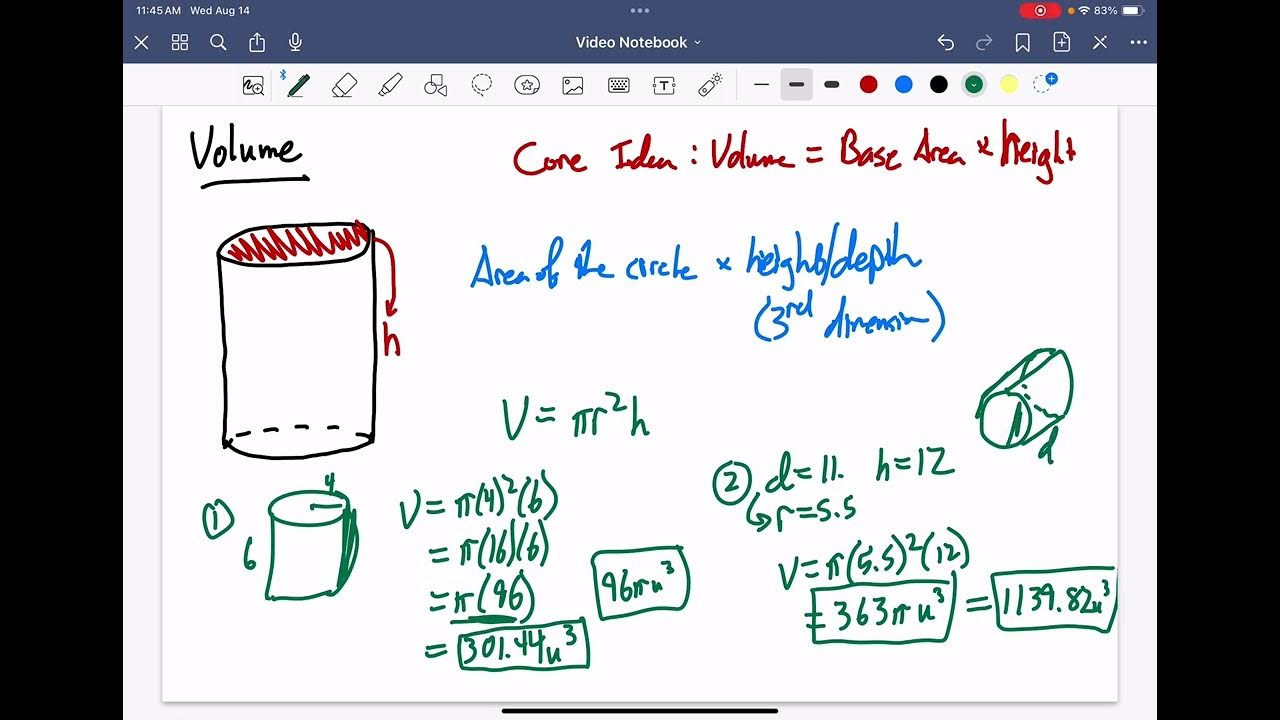 11:45 AM Wed Aug 14
83%
Video Notebook
T
Volume
Core Idea : Volume = Base Area × height
h
Area of the circle × height/depth
(3rd dimension)
V = πr²h
d
① 4
6
V = π(4)²(6)
= π(16)(6)
= π(96)
= 301.44u³
96πu³
② d=11. h=12
r=5.5
V=π(5.5)²(12)
= 363πu³ = 1139.82u³